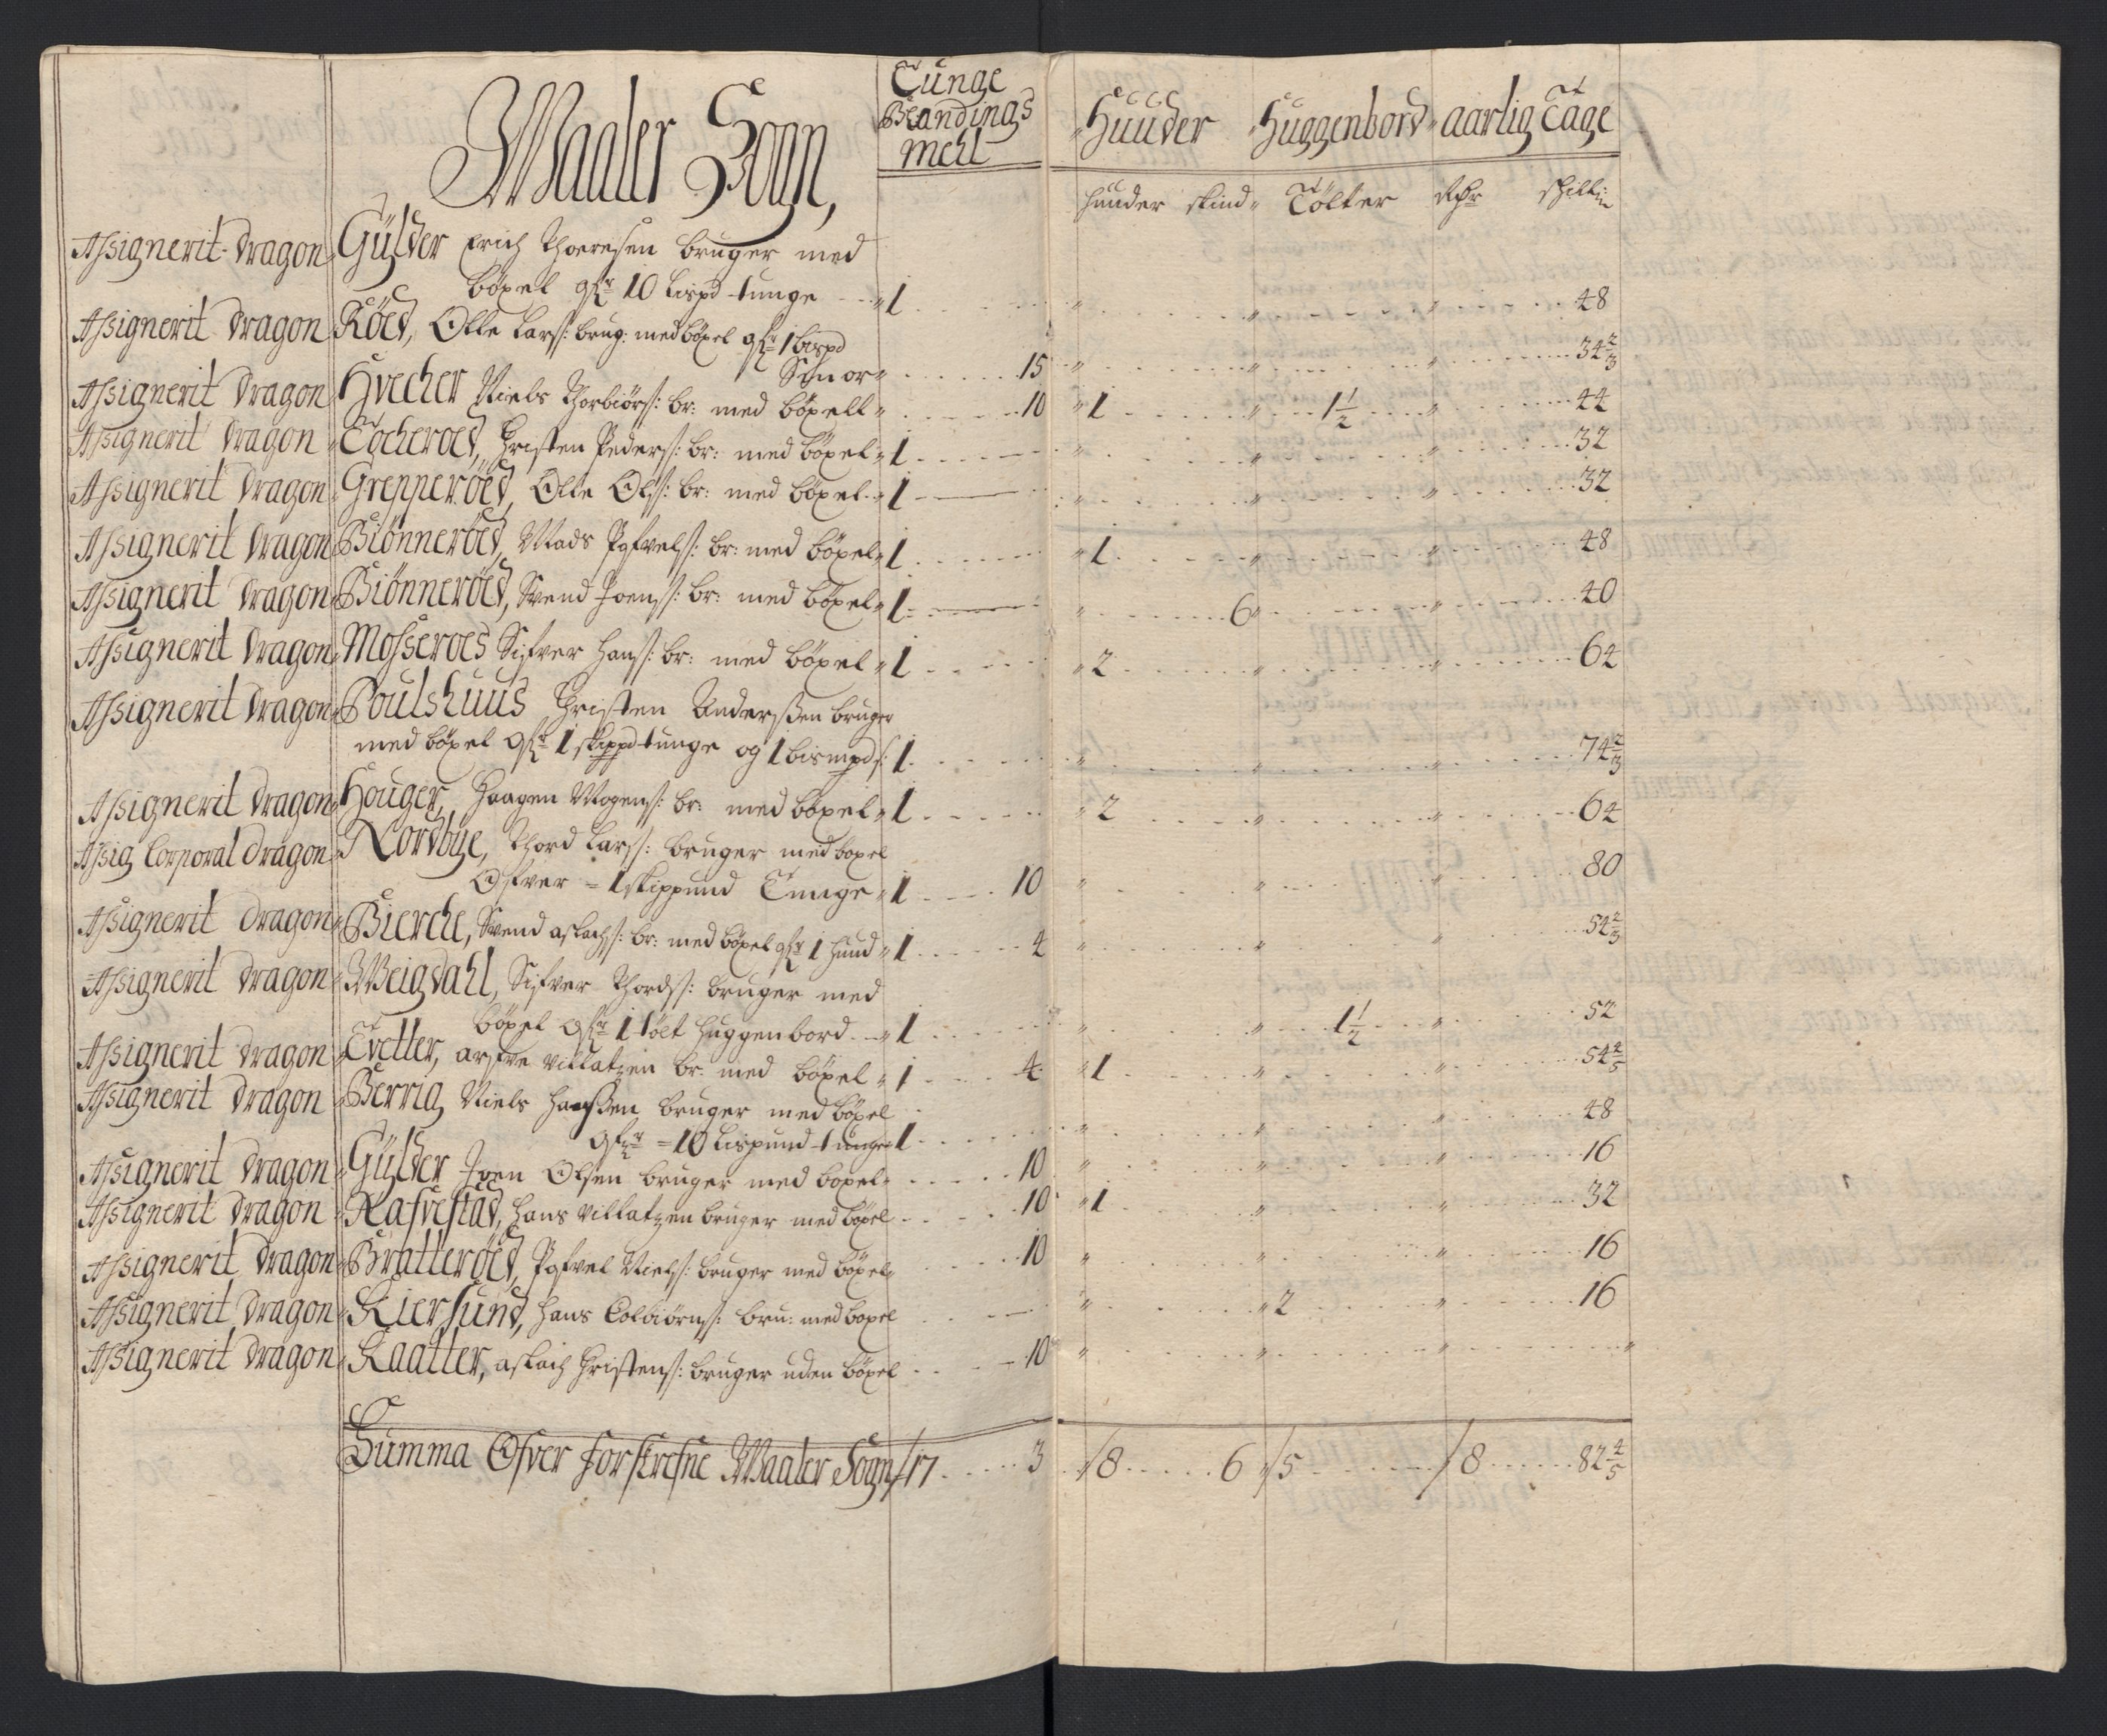 Maaler Sogn,
Tunge
Blandings
Mehl
Huuder Huggenbord aarlig Tage
huuder skind Tölter Rdr skilli:
Assignerit Dragon Gülder Erich Thoresen bruger med
böxel ofr 10 Lispd tunge 1 48
Assignerit Dragon Röed, Olle Lars: brug: med böxel ofr 1 bispd
Smör 15 34 2/3
Assignerit Dragon Hvecher Niels Thorbiörs: br: med böxell 10 1 1 1/2 44
Assignerit Dragon Tocheroed, Christen Peders: br: med böxel 1 32
Assignerit Dragon Grepperöed, Olle Ols: br: med böxel 1 32
Assignerit Dragon Biönneröed, Mads Pofvels: br: med böxel 1 1 48
Assignerit Dragon Biönneröed, Svend Joens: br: med böxel 1 6 40
Assignerit Dragon Mosseroes Sifver Hans: br: med böxel 1 2 64
Assignerit Dragon Poulshuus Christen Anderssen bruger
med böxel ofr 1 skippd tunge og 1 bismpd s: 1 74 2/3
Assignerit Dragon Houger, Haagen Mogens: br: med böxel 1 2 64
Assig Corporal Dragon Nordbye, Thord Lars: bruger med boxel
Ofver 1 skippund Tunge 1 10 80
Assignerit Dragon Bierche, Svend aslachs: br: med böxel ofr 1 huud 1 4 54 2/3
Assignerit Dragon Meigdahl, Sifver Thords: bruger med
böxel ofr 1 tölt huggenbord 1 1 1/2 52
Assignerit Dragon Tvetter, arfve villatzen br: med böxel 1 4 1 54 2/5
Assignerit Dragon Berrig Niels Hanssen bruger med böxel
ofr 10 Lispund tunge 1 48
Assignerit Dragon Gülder Joen Olsen bruger med boxel 10 16
Assignerit Dragon Rafvestad, Hans villatzen bruger med böxel 10 1 32
Assignerit Dragon Bratteröed, Pofvel Niels: bruger med böxel 10 16
Assignerit Dragon Kiersund, Hans Colbiörns: bru: med boxel 2 16
Assignerit Dragon Kaatter, aslach Christens: bruger uden böxel 10
Summa Ofver forskrefne Maaler Sogn 17 3 8 6 5 8 82 4/5